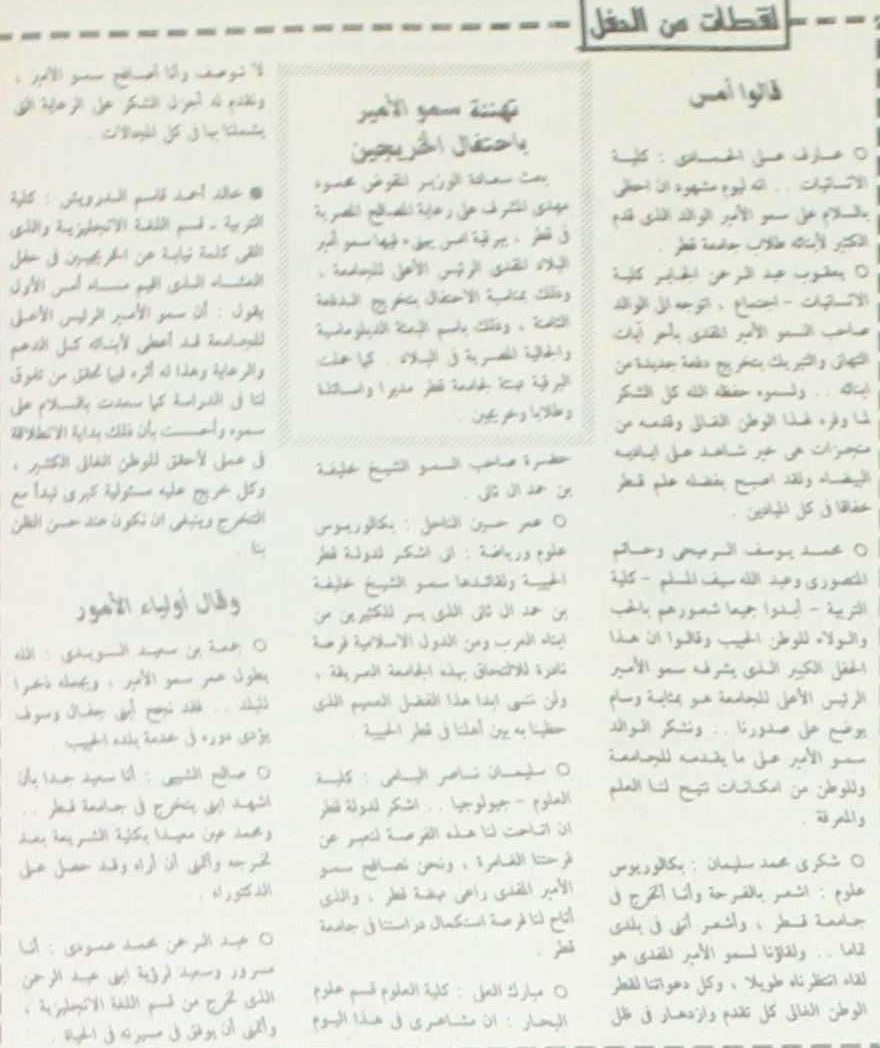 لقطات من الحفل
قالوا أمس
○ عارف على الحمادى : كلية
الانسانيات .. انه ليوم مشهود ان احظى
بالسلام على سمو الأمير الوالد الذى قدم
الكثير لأبنائه طلاب جامعة قطر .
○ يعقوب عبد الرحمن الجابر كلية
الانسانيات - اجتماع ، اتوجه الى الوالد
صاحب السمو الأمير المفدى بأحر آيات
التهانى والتبريك بتخريج دفعة جديدة من
ابنائه .. ولسموه حفظه الله كل الشكر
لما وفره لهذا الوطن الغالى وقدمه من
منجزات هى خير شاهد على اياديه
البيضاء ولقد اصبح بفضله علم قطر
خفاقا فى كل الميادين .
○ محمد يوسف الرميحى وحاتم
المنصورى وعبد الله سيف المسلم - كلية
التربية - أبدوا جميعا شعورهم بالحب
والولاء للوطن الحبيب وقالوا ان هذا
الحفل الكبير الذى يشرفه سمو الأمير
الرئيس الأعلى للجامعة هو بمثابة وسام
يوضع على صدورنا .. ونشكر الوالد
سمو الأمير على ما يقدمه للجامعة
وللوطن من امكانات تتيح لنا العلم
والمعرفة .
○ شكرى محمد سليمان : بكالوريوس
علوم : اشعر بالفرحة وأنا أتخرج فى
جامعة قطر ، وأشعر أننى فى بلدى
تماما .. ولقاؤنا لسمو الأمير المفدى هو
لقاء انتظرناه طويلا ، وكل دعواتنا لقطر
الوطن الغالى كل تقدم وازدهار فى ظل
تهنئة سمو الأمير
باحتفال الخريجين
بعث سعادة الوزير المفوض محمود
مهدى المشرف على رعاية المصالح المصرية
فى قطر ، ببرقية امس يهنىء فيها سمو أمير
البلاد المفدى الرئيس الأعلى للجامعة ،
وذلك بمناسبة الاحتفال بتخريج الدفعة
الثامنة ، وذلك باسم البعثة الدبلوماسية
والجالية المصرية فى البلاد . كما حملت
البرقية تهنئة لجامعة قطر مديرا واساتذة
وطلابا وخريجين .
حضرة صاحب السمو الشيخ خليفة
بن حمد ال ثانى .
○ عمر حسين الناحل : بكالوريوس
علوم ورياضة : انى اشكر لدولة قطر
الحبيبة ولقائدها سمو الشيخ خليفة
بن حمد ال ثانى الذى يسر للكثيرين من
ابناء العرب ومن الدول الاسلامية فرصة
نادرة للالتحاق بهذه الجامعة العريقة ،
ولن ننسى ابدا هذا الفضل العميم الذى
حظينا به بين أهلنا فى قطر الحبيبة .
○ سليمان ناصر اليامى : كلية
العلوم - جيولوجيا .. اشكر لدولة قطر
ان اتاحت لنا هذه الفرصة لنعبر عن
فرحتنا الغامرة ، ونحن نصافح سمو
الأمير المفدى راعى نهضة قطر ، والذى
أتاح لنا فرصة استكمال دراستنا فى جامعة
قطر .
○ مبارك العلى : كلية العلوم قسم علوم
البحار : ان مشاعرى فى هذا اليوم
لا توصف وأنا أصافح سمو الأمير ،
ونقدم له أجزل الشكر على الرعاية التى
يشملنا بها فى كل المجالات .
● خالد أحمد قاسم الدرويش : كلية
التربية - قسم اللغة الانجليزية والذى
القى كلمة نيابة عن الخريجين فى حفل
العشاء الذى اقيم مساء أمس الأول
يقول : أن سمو الأمير الرئيس الأعلى
للجامعة قد أعطى لأبنائه كل الدعم
والرعاية وهذا له أثره فيما تحقق من تفوق
لنا فى الدراسة كما سعدت بالسلام على
سموه وأحسست بأن ذلك بداية الانطلاقة
فى عملى لأحقق للوطن الغالى الكثير ،
وكل خريج عليه مسئولية كبرى تبدأ مع
التخرج وينبغى ان نكون عند حسن الظن
بنا .
وقال أولياء الأمور
○ جمعة بن سعيد السويدى : الله
يطول عمر سمو الأمير ، ويجعله ذخرا
للبلد .. فقد نجح أبنى جفال وسوف
يؤدى دوره فى خدمة بلده الحبيب .
○ صالح الشيبى : أنا سعيد جدا بأن
اشهد ابنى يتخرج فى جامعة قطر ..
ومحمد عين معيدا بكلية الشريعة بعد
تخرجه وأتمنى أن أراه وقد حصل على
الدكتوراه .
○ عبد الرحمن محمد عمودى : أنا
مسرور وسعيد لرؤية ابنى عبد الرحمن
الذى تخرج من قسم اللغة الانجليزية ،
وأتمنى أن يوفق فى مسيرته فى الحياة .